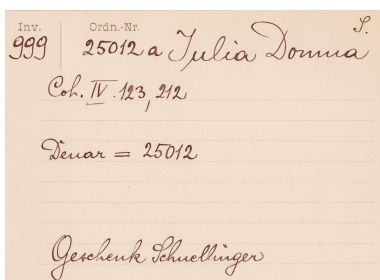 S.
Inv. Ordn.-Nr.
999 25012 a Julia Domna
Coh. IV. 123, 212
Denar = 25012
Geschenk Schnellinger